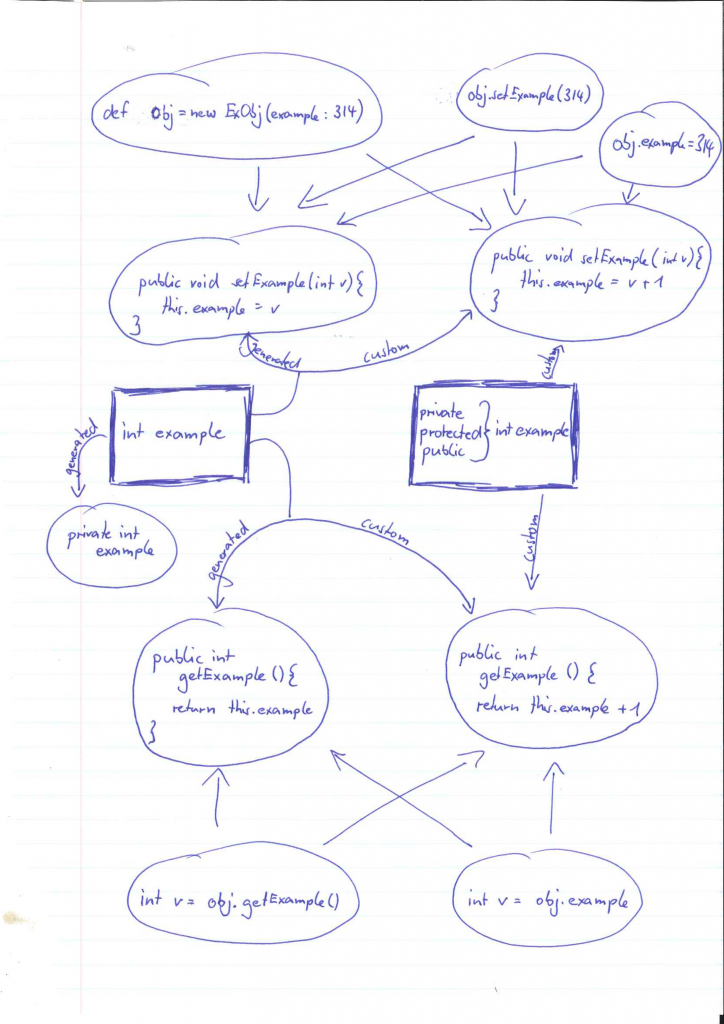 def obj = new ExObj(example: 314)
obj.setExample(314)
obj.example = 314
public void setExample(int v){
this.example = v
}
public void setExample(int v){
this.example = v + 1
}
generated
custom
custom
int example
private
protected
public
} int example
generated
private int
example
generated
custom
custom
public int
getExample(){
return this.example
}
public int
getExample () {
return this.example + 1
int v = obj.getExample()
int v = obj.example